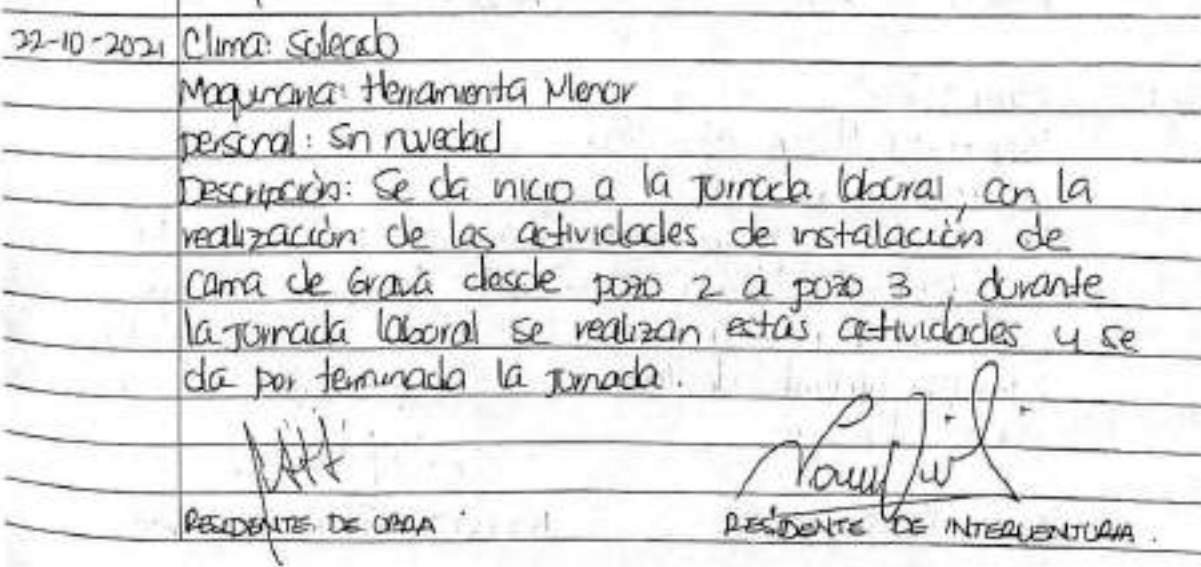 22-10-2021 Clima: Soleado
Maquinaria: Herramienta Menor
personal: Sin novedad
Descripción: Se da inicio a la Jornada laboral, con la
realización de las actividades de instalación de
cama de Grava desde pozo 2 a pozo 3, durante
la Jornada laboral se realizan estas actividades y se
da por terminada la Jornada.
RESIDENTE DE OBRA RESIDENTE DE INTERVENTURIA.